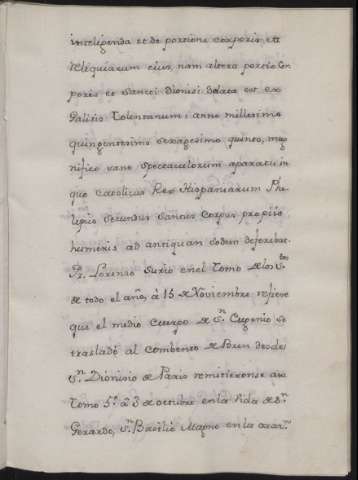 intelligenda et de portione corporis, et
Reliquiarum eius, nam altera portio Cor
poris et Sancti Dionisi delata est ex
Galijs Toletanum: anno millesimo
quingentesimo sexagesimo quinto, mag
nifico sane spectaculorum aparatu in
quo catolicus Rex Hispaniarum Phi
lipus secundus Santus Corpus propijs
humeris ad antiquan sedem deferebat.
Fr. Lorenso Surio en el tomo de los S.tos
de todo el año, à 15 de Noviembre refiere
que el medio Cuerpo de S.n Eugenio se
trasladò al combento de desde
S.n Dionisio de Paris remitiendose a su
Tomo 5.º à 3 de octubre en la Vida de S.n
Gerardo, S.n Basilio Magno en la oraz.n